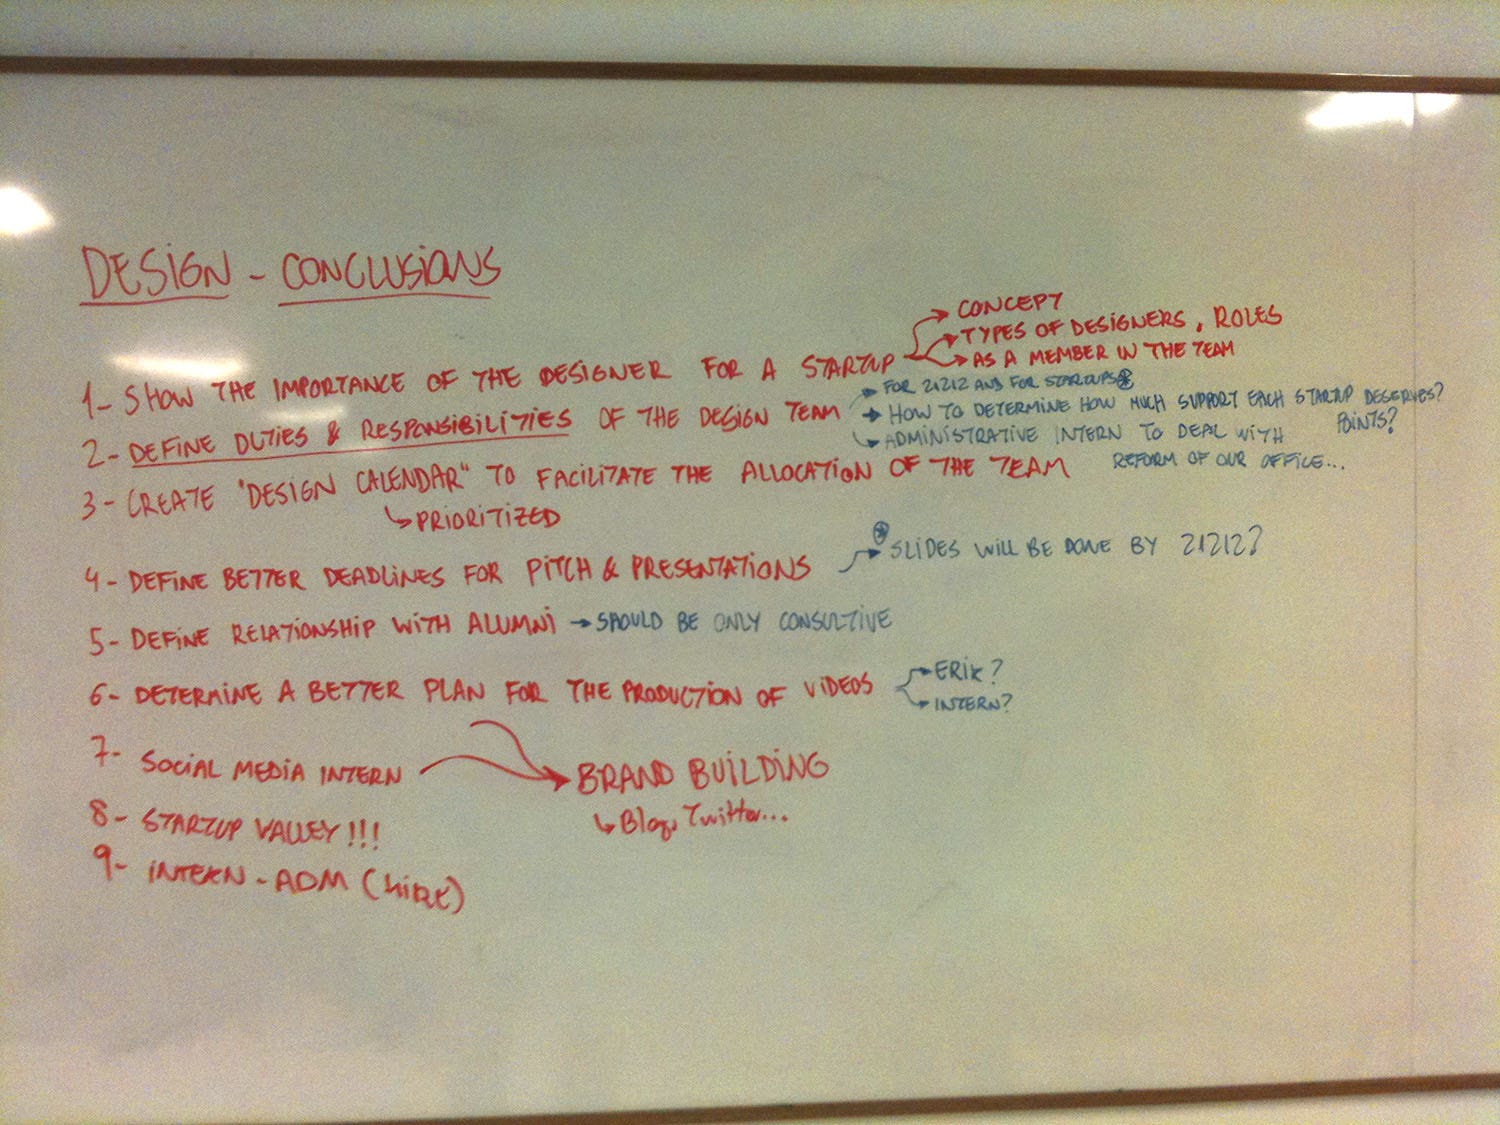 DESIGN - CONCLUSIONS
1- SHOW THE IMPORTANCE OF THE DESIGNER FOR A STARTUP
CONCEPT
TYPES OF DESIGNERS, ROLES
AS A MEMBER IN THE TEAM
2- DEFINE DUTIES & RESPONSIBILITIES OF THE DESIGN TEAM
FOR 21212 AND FOR STARTUPS
HOW TO DETERMINE HOW MUCH SUPPORT EACH STARTUP DESERVES?
POINTS?
ADMINISTRATIVE INTERN TO DEAL WITH
REFORM OF OUR OFFICE...
3- CREATE "DESIGN CALENDAR" TO FACILITATE THE ALLOCATION OF THE TEAM
PRIORITIZED
4- DEFINE BETTER DEADLINES FOR PITCH & PRESENTATIONS
SLIDES WILL BE DONE BY 21212?
5- DEFINE RELATIONSHIP WITH ALUMNI → SHOULD BE ONLY CONSULTIVE
6- DETERMINE A BETTER PLAN FOR THE PRODUCTION OF VIDEOS
ERIK?
INTERN?
7- SOCIAL MEDIA INTERN
BRAND BUILDING
Blog, Twitter...
8- STARTUP VALLEY!!!
9- INTERN - ADM (HIRE)